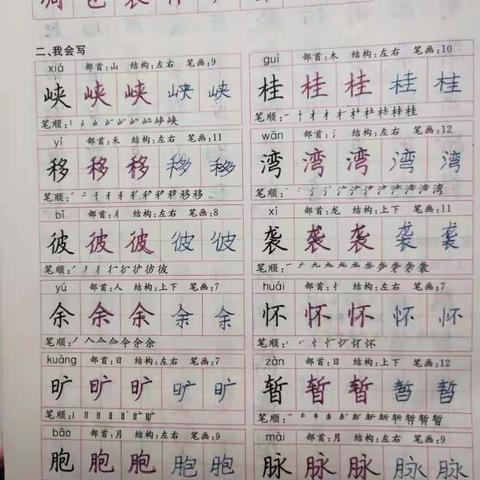 二、我会写
xiá 部首:山 结构:左右 笔画:9
峡 峡 峡 峡 峡
笔顺: 峡
yí 部首:禾 结构:左右 笔画:11
移 移 移 移 移
笔顺: 移
bǐ 部首:彳 结构:左右 笔画:8
彼 彼 彼 彼 彼
笔顺: 彼
yú 部首:人 结构:上下 笔画:7
余 余 余 余 余
笔顺: 余
kuàng 部首:日 结构:左右 笔画:7
旷 旷 旷 旷 旷
笔顺: 旷
bāo 部首:月 结构:左右 笔画:9
胞 胞 胞 胞 胞
guì 部首:木 结构:左右 笔画:10
桂 桂 桂 桂 桂
笔顺: 桂
wān 部首:氵 结构:左右 笔画:12
湾 湾 湾 湾 湾
笔顺: 湾
xí 部首:龙 结构:上下 笔画:11
袭 袭 袭 袭 袭
笔顺: 袭
huái 部首:忄 结构:左右 笔画:7
怀 怀 怀 怀 怀
笔顺: 怀
zàn 部首:日 结构:上下 笔画:12
暂 暂 暂 暂 暂
笔顺: 暂
mài 部首:月 结构:左右 笔画:9
脉 脉 脉 脉 脉